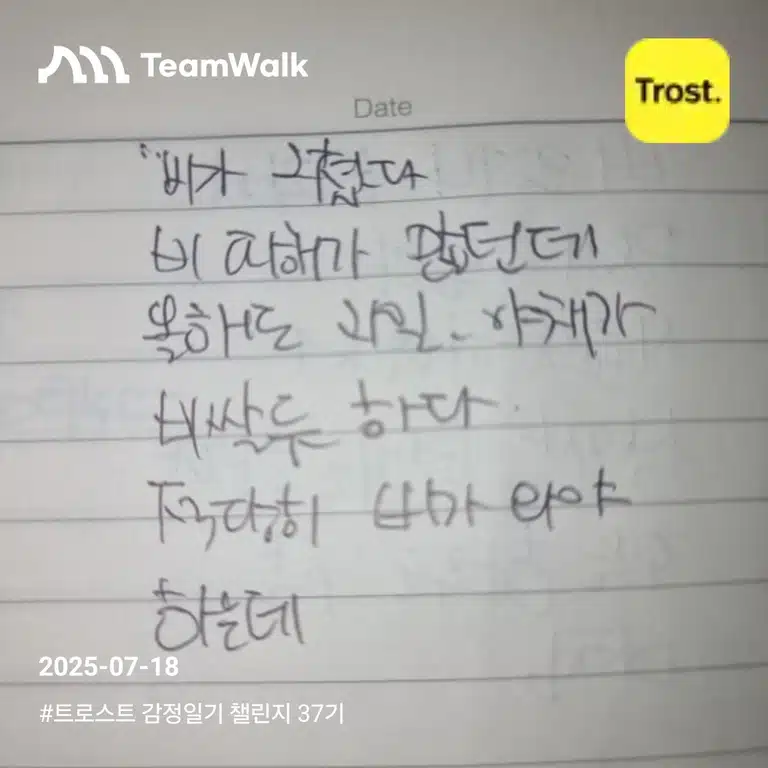 TeamWalk
Trost.
Date
"비가 그쳤다
비 피해가 많던데
올해도 과일. 야채가
비쌀듯 하다
적당히 비가 와야
하는데
2025-07-18
#트로스트 감정일기 챌린지 37기